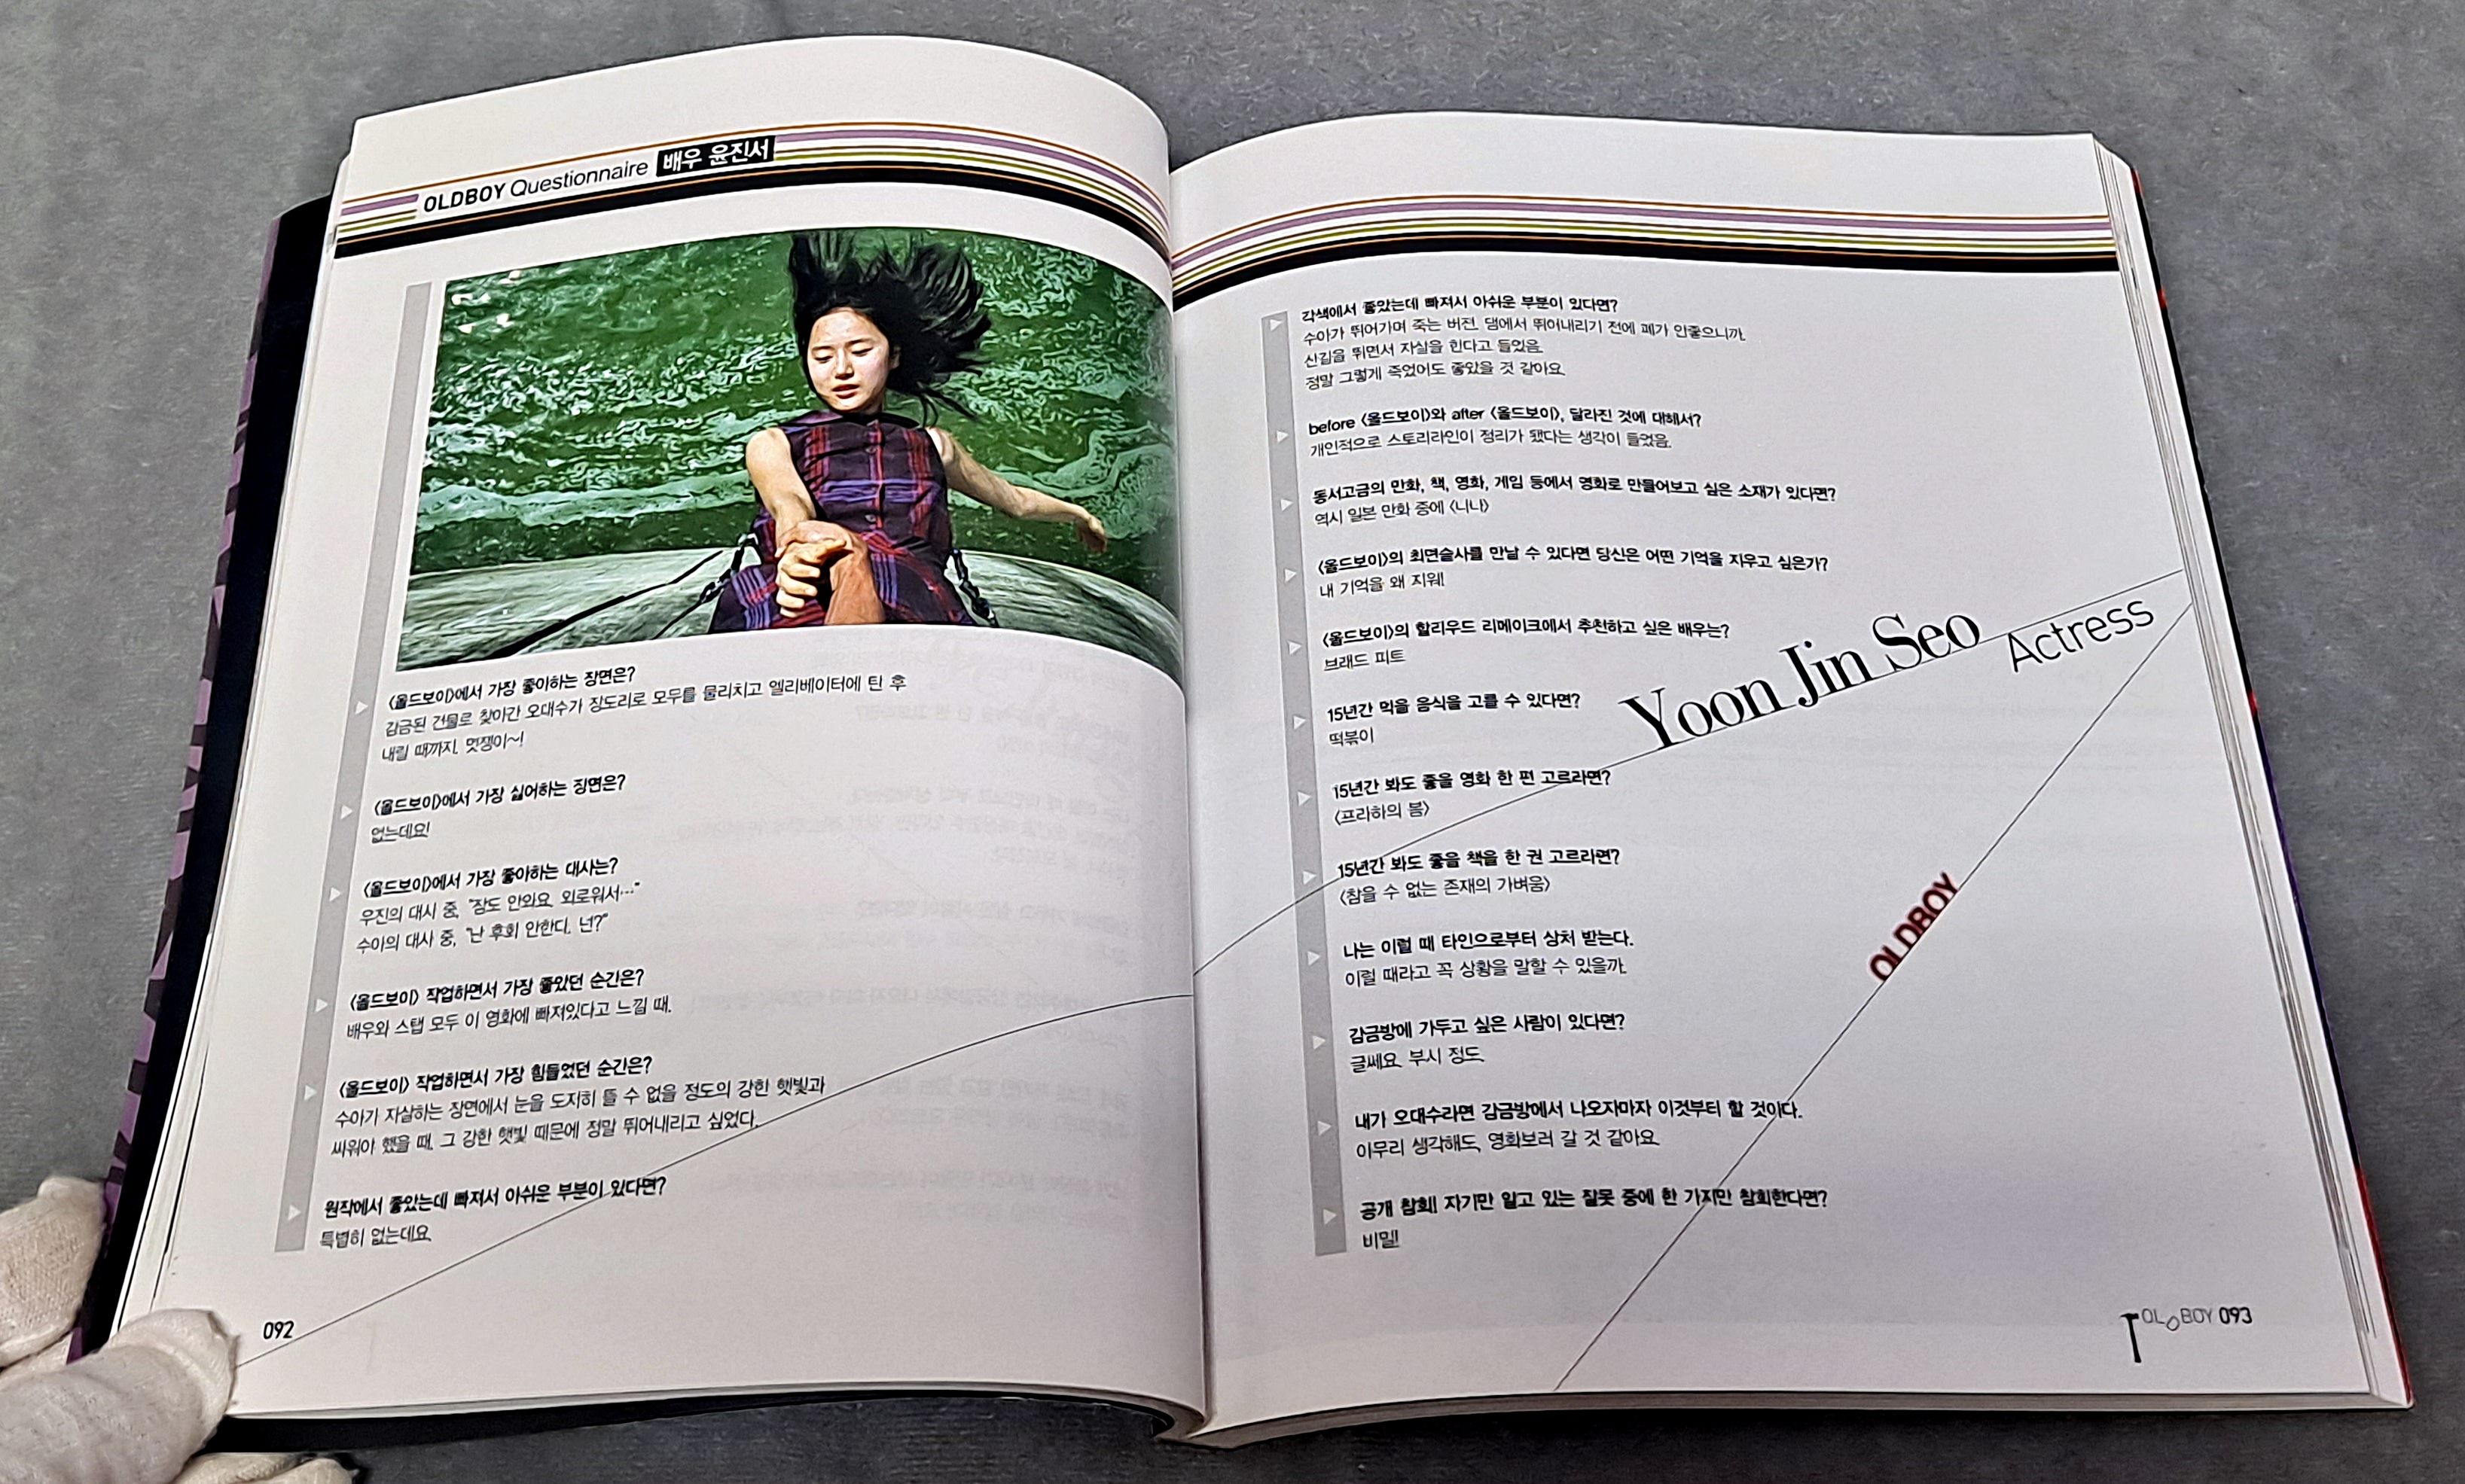 OLDBOY Questionnaire 배우 윤진서
<올드보이>에서 가장 좋아하는 장면은?
감금된 건물로 찾아간 오대수가 장도리로 모두를 물리치고 엘리베이터에 탄 후
내릴 때까지. 멋쟁이~!
<올드보이>에서 가장 싫어하는 장면은?
없는데요!
<올드보이>에서 가장 좋아하는 대사는?
우진의 대사 중, "잠도 안와요. 외로워서…"
수아의 대사 중, "난 후회 안한다. 넌?"
<올드보이> 작업하면서 가장 좋았던 순간은?
배우와 스탭 모두 이 영화에 빠져있다고 느낄 때.
<올드보이> 작업하면서 가장 힘들었던 순간은?
수아가 자살하는 장면에서 눈을 도저히 뜰 수 없을 정도의 강한 햇빛과
싸워야 했을 때. 그 강한 햇빛 때문에 정말 뛰어내리고 싶었다.
원작에서 좋았는데 빠져서 아쉬운 부분이 있다면?
특별히 없는데요.
092
각색에서 좋았는데 빠져서 아쉬운 부분이 있다면?
수아가 뛰어가며 죽는 버전. 댐에서 뛰어내리기 전에 폐가 안좋으니까.
산길을 뛰면서 자살을 한다고 들었음.
정말 그렇게 죽었어도 좋았을 것 같아요.
before <올드보이>와 after <올드보이>, 달라진 것에 대해서?
개인적으로 스토리라인이 정리가 됐다는 생각이 들었음.
동서고금의 만화, 책, 영화, 게임 등에서 영화로 만들어보고 싶은 소재가 있다면?
역시 일본 만화 중에 <나나>
<올드보이>의 최면술사를 만날 수 있다면 당신은 어떤 기억을 지우고 싶은가?
내 기억을 왜 지워!
<올드보이>의 할리우드 리메이크에서 추천하고 싶은 배우는?
브래드 피트
15년간 먹을 음식을 고를 수 있다면?
떡볶이
15년간 봐도 좋을 영화 한 편 고르라면?
<프라하의 봄>
15년간 봐도 좋을 책을 한 권 고르라면?
<참을 수 없는 존재의 가벼움>
나는 이럴 때 타인으로부터 상처 받는다.
이럴 때라고 꼭 상황을 말할 수 있을까.
감금방에 가두고 싶은 사람이 있다면?
글쎄요. 부시 정도.
내가 오대수라면 감금방에서 나오자마자 이것부터 할 것이다.
아무리 생각해도, 영화보러 갈 것 같아요.
공개 참회! 자기만 알고 있는 잘못 중에 한 가지만 참회한다면?
비밀!
Yoon Jin Seo
Actress
OLDBOY
OLDBOY 093